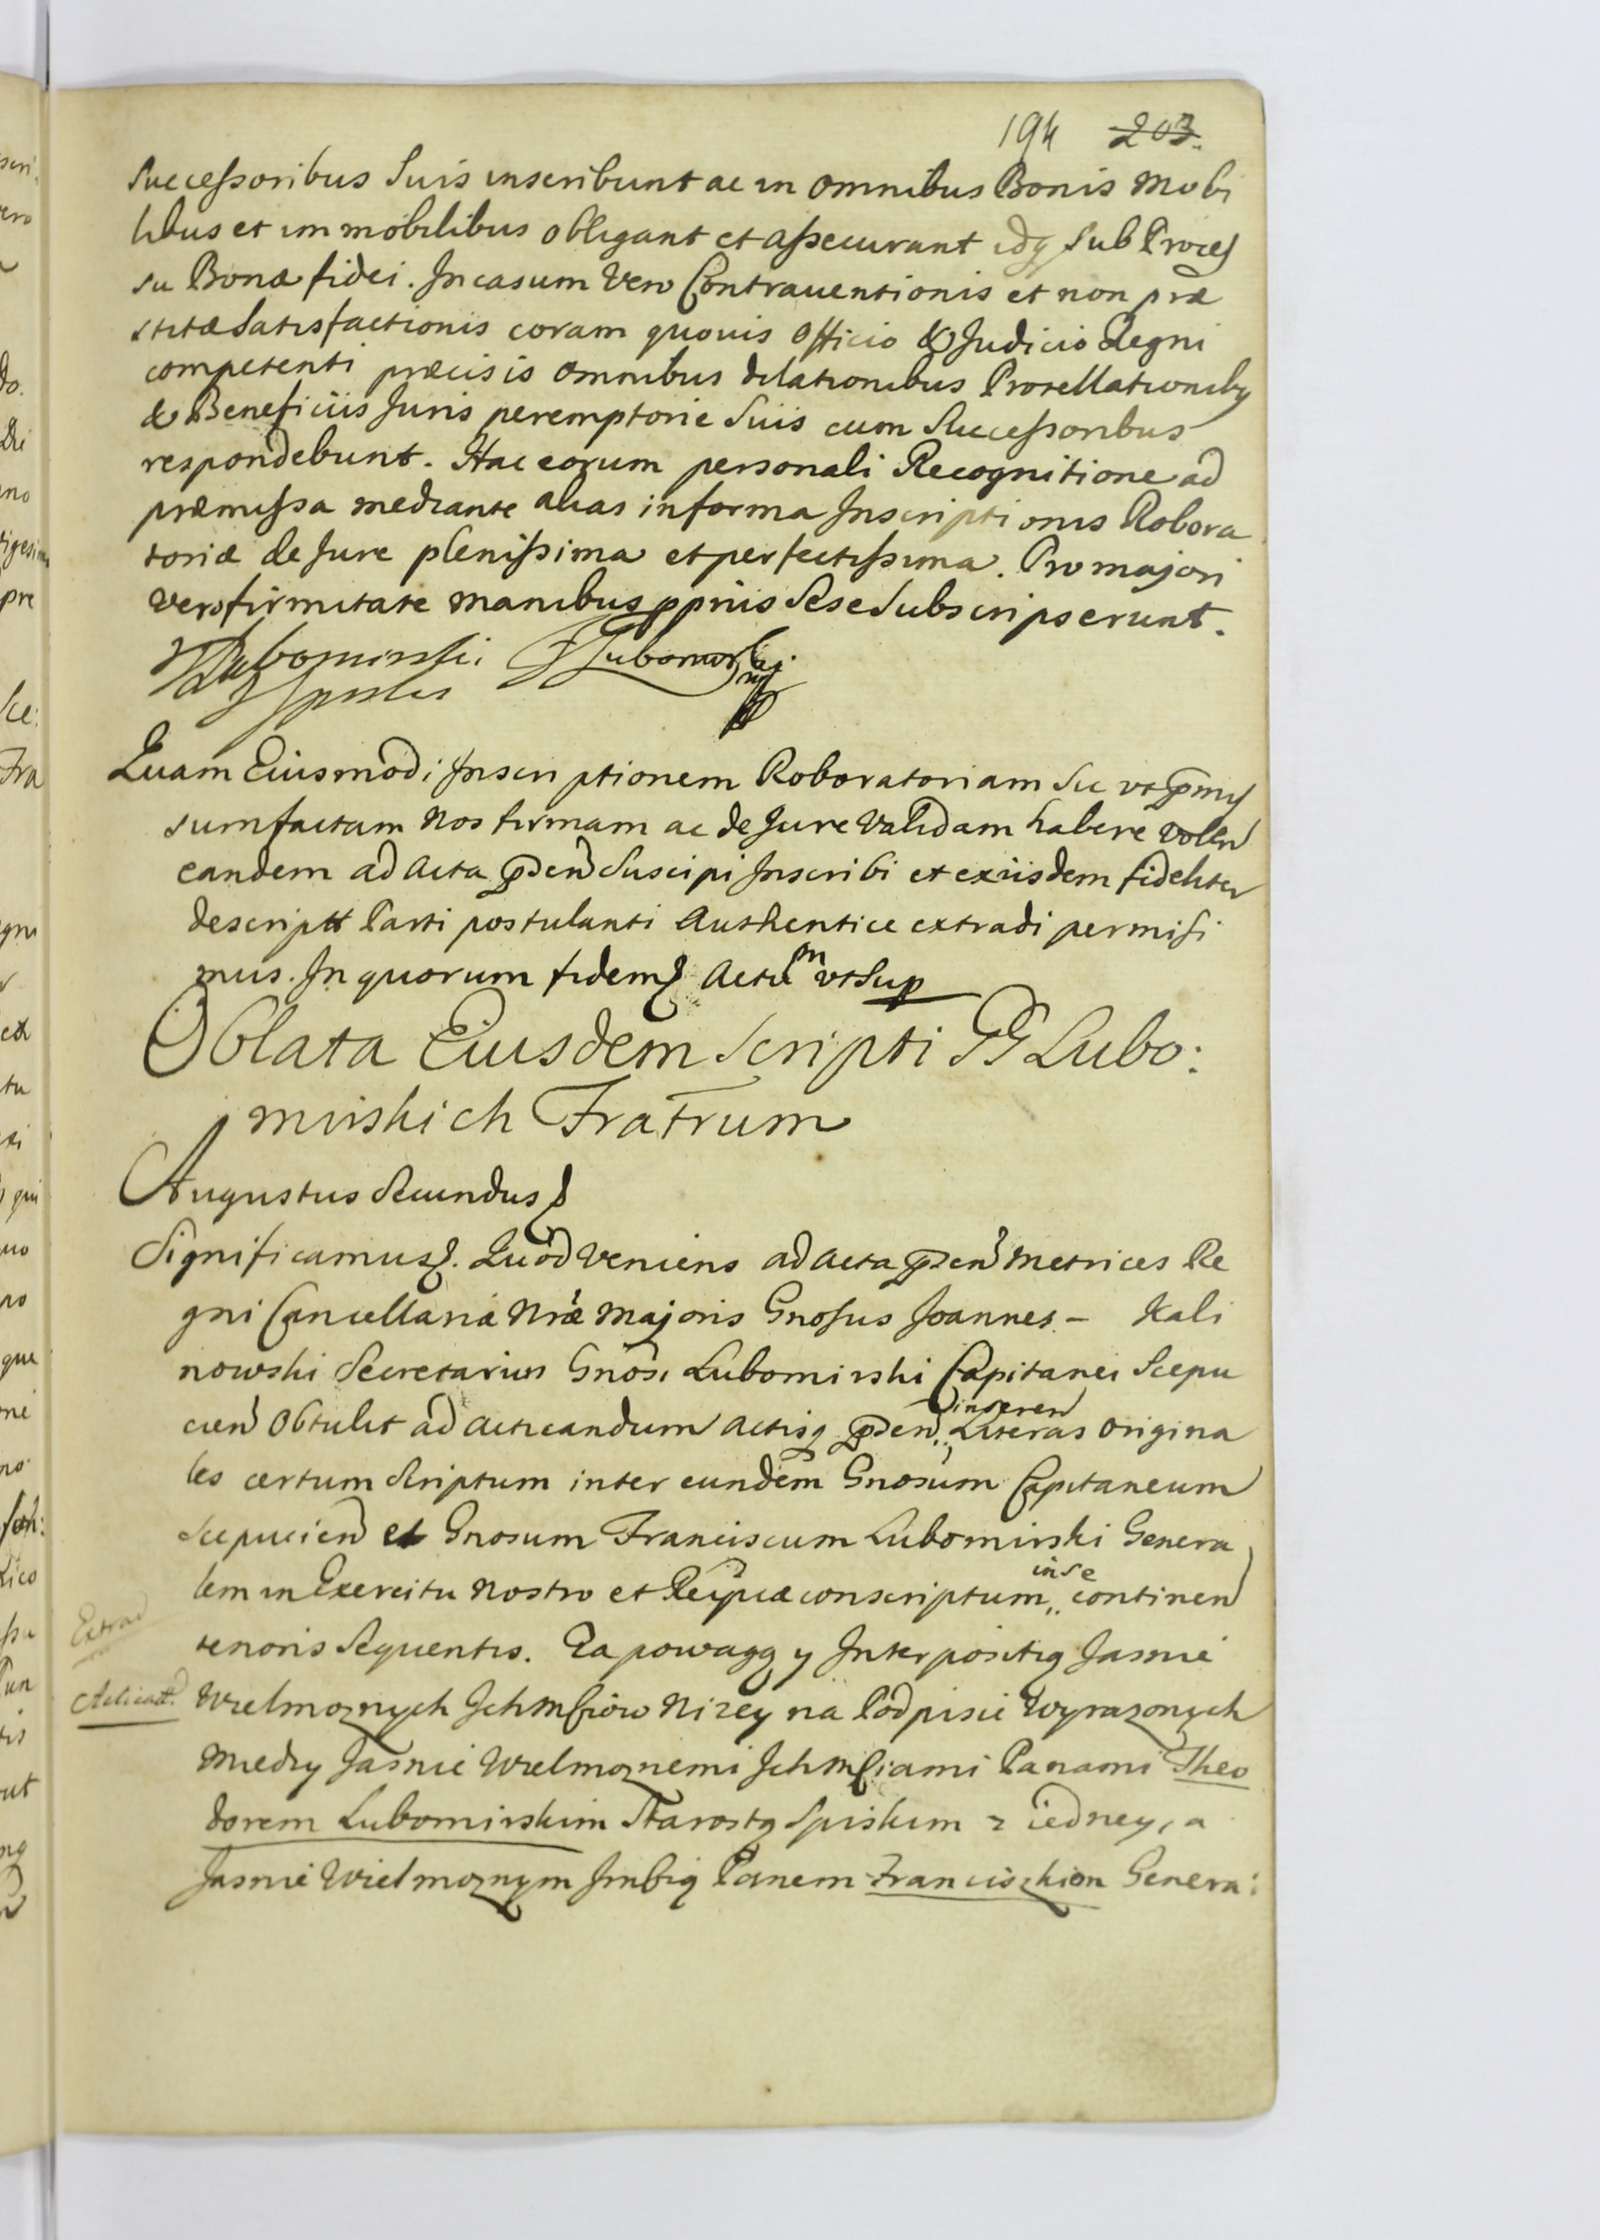 194 203.
Successoribus Suis inscribunt ac in omnibus Bonis Mobi
libus et immobilibus obligant et assecurant idq Sub Proces
su Bonæ fidei. In casum Vero Contrauentionis et non præ
stitæ Satisfactionis coram quouis officio & Judicio Regni
competenti præcisis omnibus dilationibus Protellationibq
& Beneficiis Juris peremptorie Suis cum Successoribus
respondebunt. Hac eorum personali Recognitione ad
præmissa mediante alias in forma Inscriptionis Robora
toriæ de Jure plenissima et perfectissima. Pro majori
Vero firmitate manibus ppriis Sese Subscripserunt.
Lubomirski Lubomirski
Quam Eiusmodi Inscriptionem Roboratoriam Sic vt pmis
sum factam Nos firmam ac de Jure Validam habere Volen
eandem ad Acta pden Suscipi Inscribi et exiisdem fideliter
descriptt Parti postulanti Authentice extradi permisi
mus. In quorum fidem Actum vt Sup
Oblata Eiusdem Scripti GG Lubo:
mirskich Fratrum
Augustus Secundus
Significamus. Quod Veniens ad Acta pden Metrices Re
gni Cancellariæ Nræ Majoris Gnosus Joannes – Kali
nowski Secretarius Gnosi Lubomirski Capitanei Scepu
cien Obtulit ad acticandum Actisq pden inseren Literas origina
les certum Scriptum inter eundem Gnosum Capitaneum
Scepucien et Gnosum Franciscum Lubomirski Genera
lem in Exercitu Nostro et Reipcæ conscriptum in se continen
Extrad
tenoris Sequentis. Za powagą y Interpositią Jasnie
Acticatt. Wielmoznych Ichmściow Nizey na Podpisie Wyrazonych
Miedzy Jasnie Wielmoznemi Ichmściami Panami Theo
dorem Lubomirskim Starostą Spiskim z iedney, a
Jasnie Wielmoznym Jmścią Panem Franciszkiem Genera: